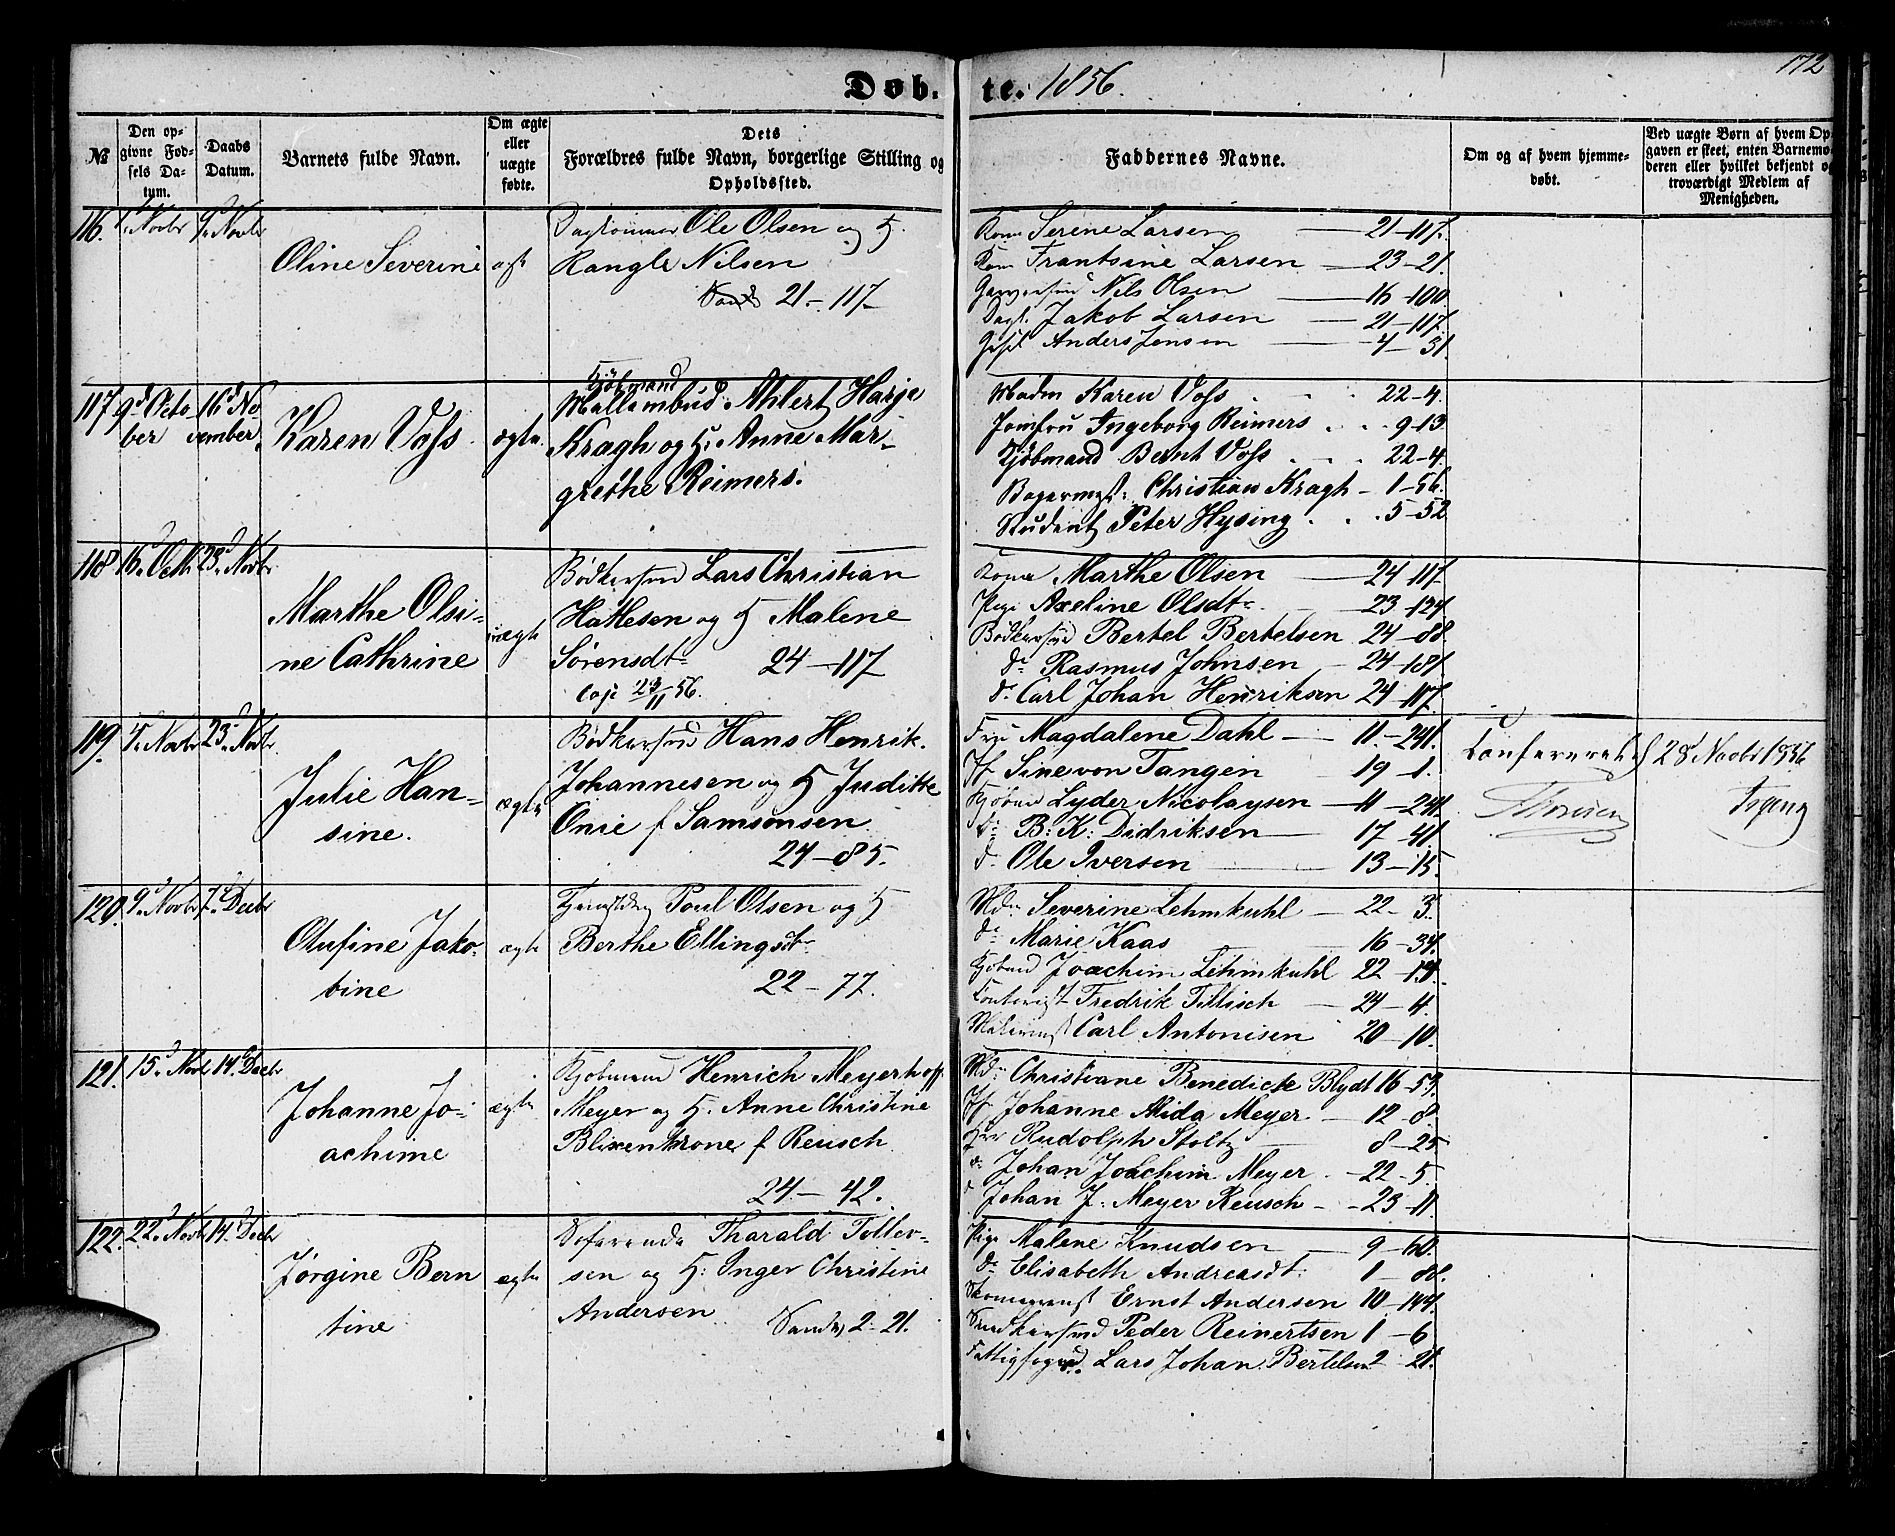 Døb-te. 1856.
172
№
Den opgivne Fødsels Datum.
Daabs Datum.
Barnets fulde Navn.
Om ægte eller uægte fødte.
Dets Forældres fulde Navn, borgerlige Stilling og Opholdssted.
Faddernes Navne.
Om og af hvem hjemmedøbt.
Ved uægte Børn af hvem Opgaven er skeet, enten Barnemoderen eller hvilket bekjendt og troværdigt Medlem af Menigheden.
116. 1 Novbr 9d Novbr
Oline Severine
ægte
Ole Olsen og H.
Nilsen
21-117
Kone Serine Larsen 21-117.
Kone Frantsine Larsen 23-21.
Nils Olsen 16-100.
Jakob Larsen 21-117.
Anders Jensen 4-31.
117 9d October 16d November
Karen Voss
ægte.
Kjøbmand
Ahlert Harje
Kragh og H. Anne Mar-
grethe Reimers.
Madm Karen Voss 22-4.
Jomfru Ingeborg Reimers 9-13
Kjøbmand Bernt Voss 22-4.
Bagermest: Christian Kragh 1-56.
Student Peter Hysing 5-52
118 16d Octb 23d Novbr
Marthe Olsi-
ne Cathrine
uægte
Bødkersvd Lars Christian
og H Malene
Sørensdtr 24-117
cop 23/11 56.
Kone Marthe Olsen 24-117.
Pige Axeline Olsdtr 23-124.
Bødkersvd Bertel Bertelsen 24-88.
do Rasmus Johnsen 24-181.
do Carl Johan Henriksen 24-117.
119. Novbr 23d Novbr.
Julie Han-
sine.
ægte
Bødkersvd Hans Henrik
Johannesen og H Juditte
Onie f Samsonsen
24-85.
Fru Magdalene Dahl 11-241.
Jf Sine von Tangen 19-1.
Kjøbmd Lyder Nicolaysen 11-241.
do B: K: Didriksen 17-41.
do Ole Iversen 13-15
28d Novbr 1856
120. 9d Novbr 7d Decbr
Olufine Jako-
bine
ægte
Poul Olsen og H
Berthe Ellingsdtr
22-77.
Md: Severine Lehmkuhl 22-3.
do Marie Kaas 16-34.
Kjøbmd Joachim Lehmkuhl 22-
Fredrik Tillisch 24-4.
Carl Antonisen 20-10.
121. 15d Novbr 14d Decbr
Johanne Jo-
achime
ægte
Kjøbmand Henrich Meyerhoff
Meyer og H. Anne Christine
Blixenkrone f Reusch
24-42.
Md: Christiane Benedicte Blydt 16-53.
Jf Johanne Alida Meyer 12-8.
Hrr Rudolph Stoltz 8-25
do Johan Joachim Meyer 22-5.
do Johan J: Meyer Reusch 23-11.
122. 22d Novbr 14d Decbr
Jørgine Bern
tine
ægte
Søfarende Tharald Tollev-
sen og H: Inger Christine
Andersen
2-21.
Pige Malene Knudsen 9-60.
do Elisabeth Andreasdt: 1-88.
Skomagermst Ernst Andersen 10-144.
Peder Reinertsen 1-6
Lars Johan Bertelsen 2-21.